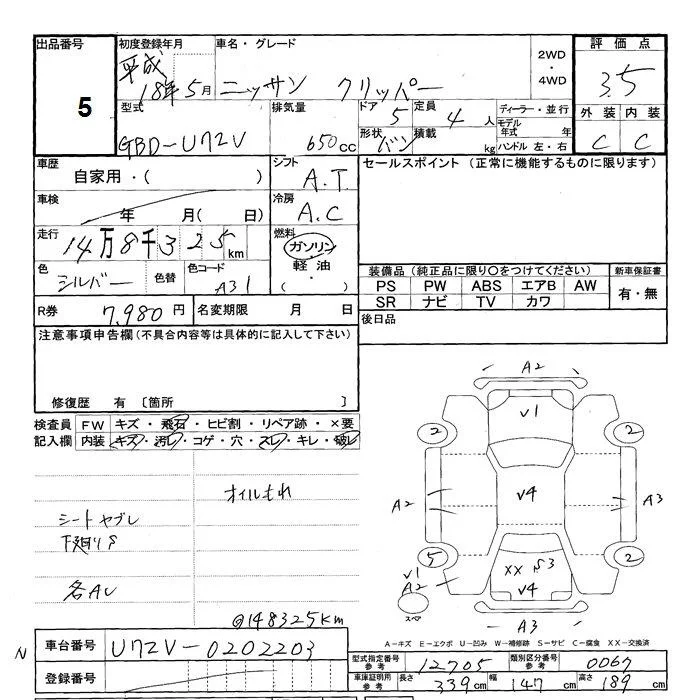 出品番号 5
初度登録年月 平成18年5月
車名・グレード ニッサン クリッパー
2WD・4WD
評価点 3.5
外装 内装
C C
型式 GBD-U72V
排気量 650cc
ドア 5
定員 4人
形状 バン
積載 kg
ディーラー・並行
モデル年式 年
ハンドル 左・右
車歴 自家用・( )
シフト A.T
セールスポイント(正常に機能するものに限ります)
車検 年 月( 日)
冷房 A.C
走行 14万8千325km
燃料 ガソリン・軽油・( )
色 シルバー 色替
色コード A31
装備品(純正品に限り○をつけてください)
新車保証書
PS PW ABS エアB AW
SR ナビ TV カワ
有・無
R券 7,980円
名変期限 月 日
後日品
注意事項申告欄(不具合内容等は具体的に記入して下さい)
修復歴 有 〔箇所 〕
検査員記入欄
FW キズ・飛石・ヒビ割・リペア跡・×要
内装 キズ・汚レ・コゲ・穴・スレ・キレ・破レ
オイルもれ
シートヤブレ
下廻りS
各AU
@148325km
A2
V1
2 2
A2 V4 A3
5 2
V1
A2
XX S3
V4
スペア
A3
A-キズ E-エクボ U-凹み W-補修跡 S-サビ C-腐食 XX-交換済
N
車台番号 U72V-0202203
登録番号
型式指定番号 参考 12705
類別区分番号 参考 0067
車庫証明用 参考 長さ 339cm 幅 147cm 高さ 189cm